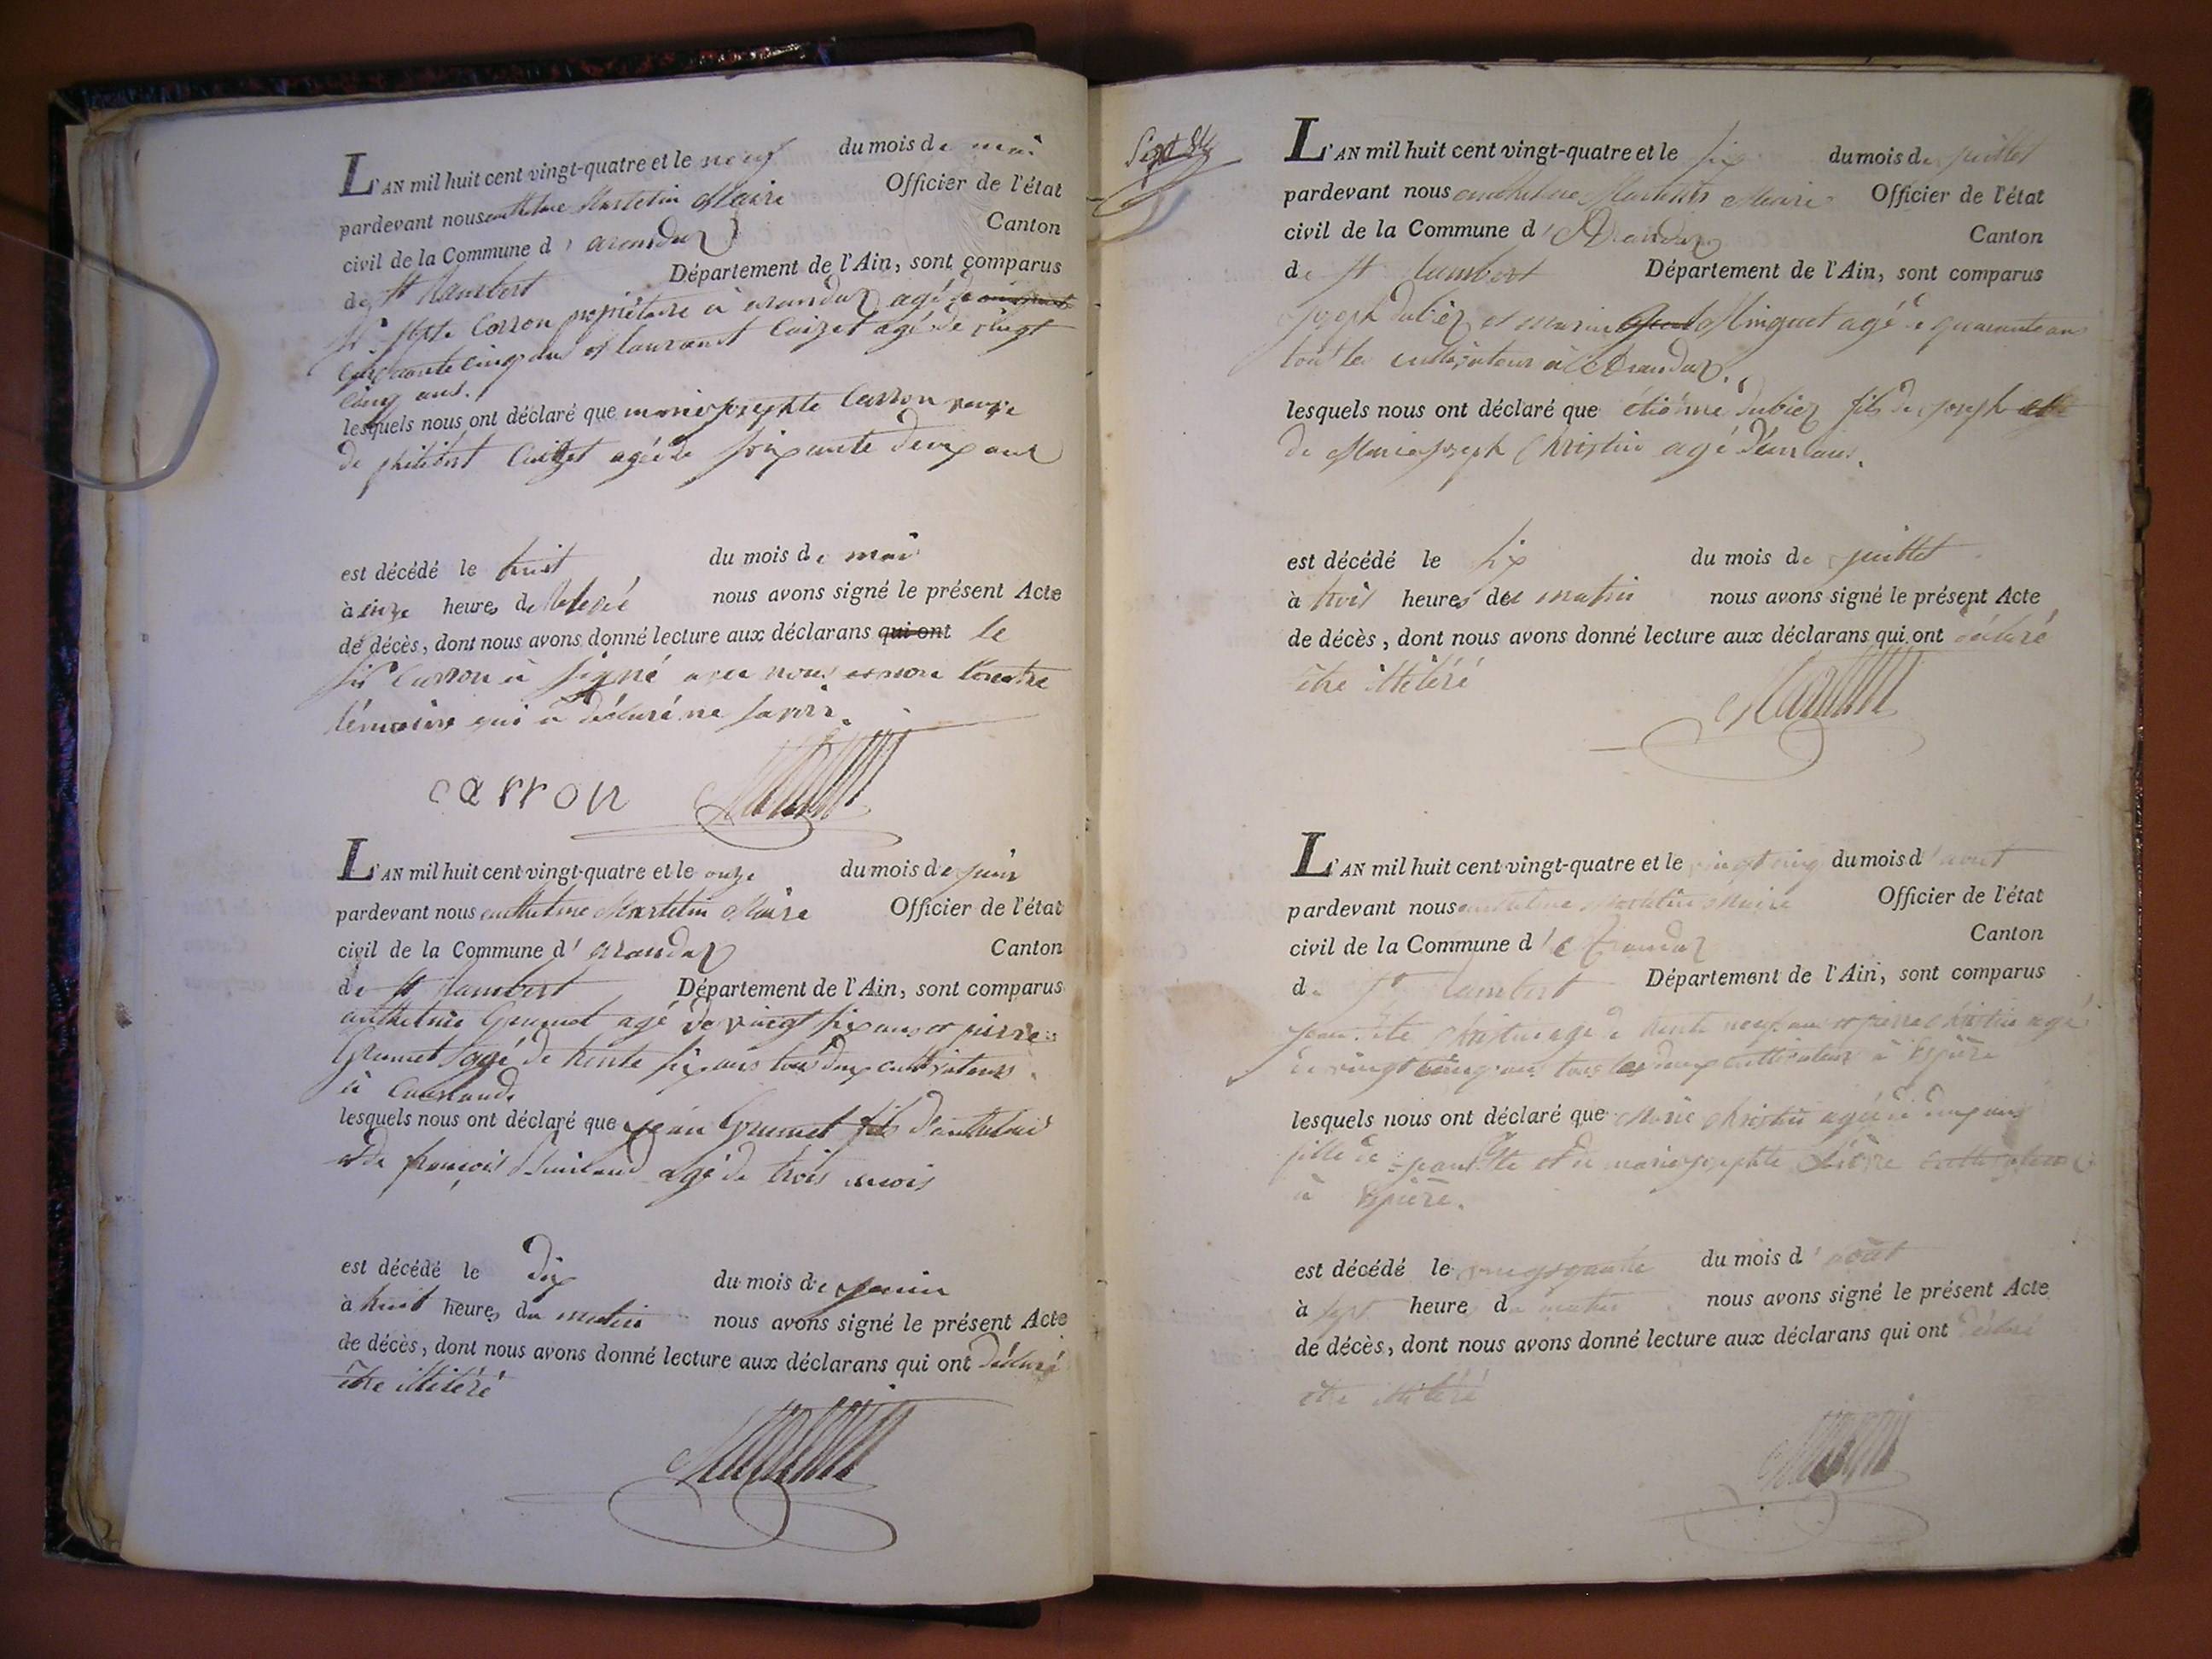 L'AN mil huit cent vingt-quatre et le neuf du mois de mai
pardevant nous anthelme Martelin Maire Officier de l'état
civil de la Commune d' arandaz Canton
de St Rambert Département de l'Ain, sont comparus
carron propriétaire à arandaz agé de
cinquante cinq ans et laurant Cuizet agé de vingt
cinq ans.
lesquels nous ont déclaré que marie josephte Carron veuve
de philibert Cuizet agée de soixante deux ans
est décédé le huit du mois de mai
à onze heures de relevée nous avons signé le présent Acte
de décès, dont nous avons donné lecture aux déclarans qui ont le
Sr Carron a signé avec nous et non l'autre
témoins qui a déclaré ne savoir.
carron
L'AN mil huit cent vingt-quatre et le onze du mois de juin
pardevant nous anthelme Martelin Maire Officier de l'état
civil de la Commune d' arandaz Canton
de St Rambert Département de l'Ain, sont comparus
anthelme Grumet agé de vingt six ans et pierre
Grumet agé de trente six ans tous deux cultivateurs
à
lesquels nous ont déclaré que jean Grumet fils d'anthelme
et de françoise agé de trois mois
est décédé le dix du mois de juin
à huit heures du matin nous avons signé le présent Acte
de décès, dont nous avons donné lecture aux déclarans qui ont déclaré
être illitéré
L'AN mil huit cent vingt-quatre et le six du mois de juillet
pardevant nous anthelme Martelin Maire Officier de l'état
civil de la Commune d' Arandaz Canton
de St Rambert Département de l'Ain, sont comparus
joseph dubiez et marin Minguet agé de quarante ans
tous les cultivateurs à Arandaz.
lesquels nous ont déclaré que étienne dubiez fils de joseph et
de Marie joseph Christin agé d'un ans.
est décédé le six du mois de juillet
à trois heures du matin nous avons signé le présent Acte
de décès, dont nous avons donné lecture aux déclarans qui ont déclaré
être illitéré
L'AN mil huit cent vingt-quatre et le vingt cinq du mois d' aout
pardevant nous anthelme Martelin Maire Officier de l'état
civil de la Commune d' Arandaz Canton
de St Rambert Département de l'Ain, sont comparus
jean Bte Christin agé de trente neuf ans et pierre Christin agé
de vingt cinq ans tous les deux cultivateurs à
lesquels nous ont déclaré que Marie Christin agée de deux ans
fille de jean Bte et de marie josephte
à
est décédé le vingt quatre du mois d' aout
à sept heures du matin nous avons signé le présent Acte
de décès, dont nous avons donné lecture aux déclarans qui ont déclaré
être illitéré